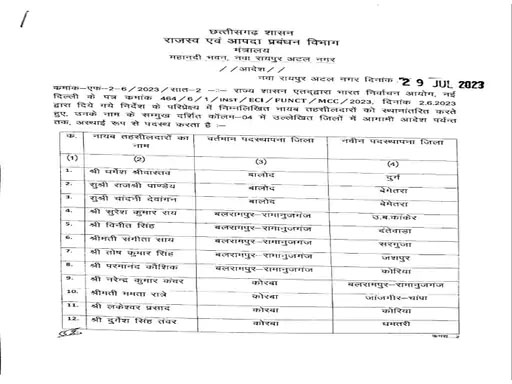 छत्तीसगढ़ शासन
राजस्व एवं आपदा प्रबंधन विभाग
मंत्रालय
महानदी भवन, नवा रायपुर अटल नगर
//आदेश//
नवा रायपुर अटल नगर दिनांक 29 JUL 2023
क्रमांक-एफ-2-6/2023/सात-2 –:– राज्य शासन एतद्द्वारा भारत निर्वाचन आयोग, नई
दिल्ली के पत्र क्रमांक 464/6/1/INST/ECI/FUNCT/MCC/2023, दिनांक 2.6.2023
द्वारा दिये गये निर्देश के परिप्रेक्ष्य में निम्नलिखित नायब तहसीलदारों को स्थानांतरित करते
हुए, उनके नाम के सम्मुख दर्शित कॉलम-04 में उल्लेखित जिलों में आगामी आदेश पर्यन्त
तक, अस्थाई रूप से पदस्थ करता है :–
क. नायब तहसीलदारों का नाम वर्तमान पदस्थापना जिला नवीन पदस्थापना जिला
(1) (2) (3) (4)
1. श्री धर्मेश श्रीवास्तव बालोद दुर्ग
2. सुश्री राजश्री पाण्डेय बालोद बेमेतरा
3. सुश्री चांदनी देवांगन बालोद बेमेतरा
4. श्री सुरेश कुमार राय बलरामपुर-रामानुजगंज उ.ब.कांकेर
5. श्री विनीत सिंह बलरामपुर-रामानुजगंज दंतेवाड़ा
6. श्रीमती संगीता साय बलरामपुर-रामानुजगंज सरगुजा
7. श्री तोष कुमार सिंह बलरामपुर-रामानुजगंज जशपुर
8. श्री परमानंद कौशिक बलरामपुर-रामानुजगंज कोरिया
9. श्री नरेन्द्र कुमार कंवर कोरबा बलरामपुर-रामानुजगंज
10. श्रीमती ममता रात्रे कोरबा जांजगीर-चांपा
11. श्री लकेश्वर प्रसाद कोरबा कोरिया
12. श्री दुर्गेश सिंह तंवर कोरबा धमतरी